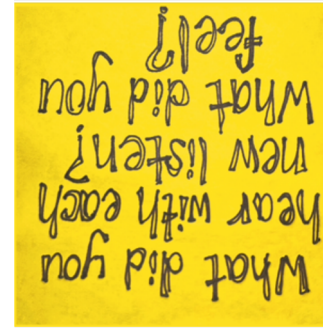 What did you
hear with each
new listen?
What did you
feel?